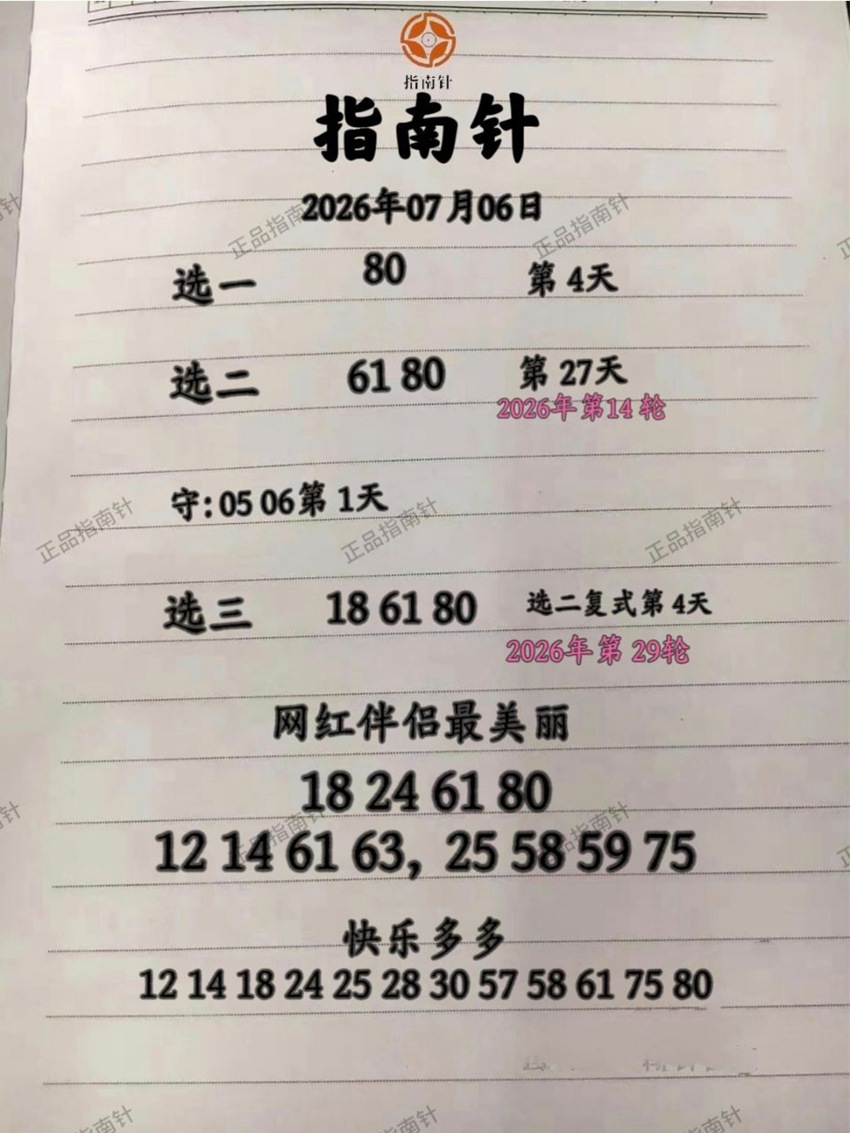 指南针
指南针
2026年07月06日
选一 80 第 4天
选二 61 80 第 27天
2026年第14轮
守:05 06第 1天
选三 18 61 80 选二复式第 4天
2026年第 29轮
网红伴侣最美丽
18 24 61 80
12 14 61 63, 25 58 59 75
快乐多多
12 14 18 24 25 28 30 57 58 61 75 80
正品指南针
正品指南针
正品指南针
正品指南针
正品指南针